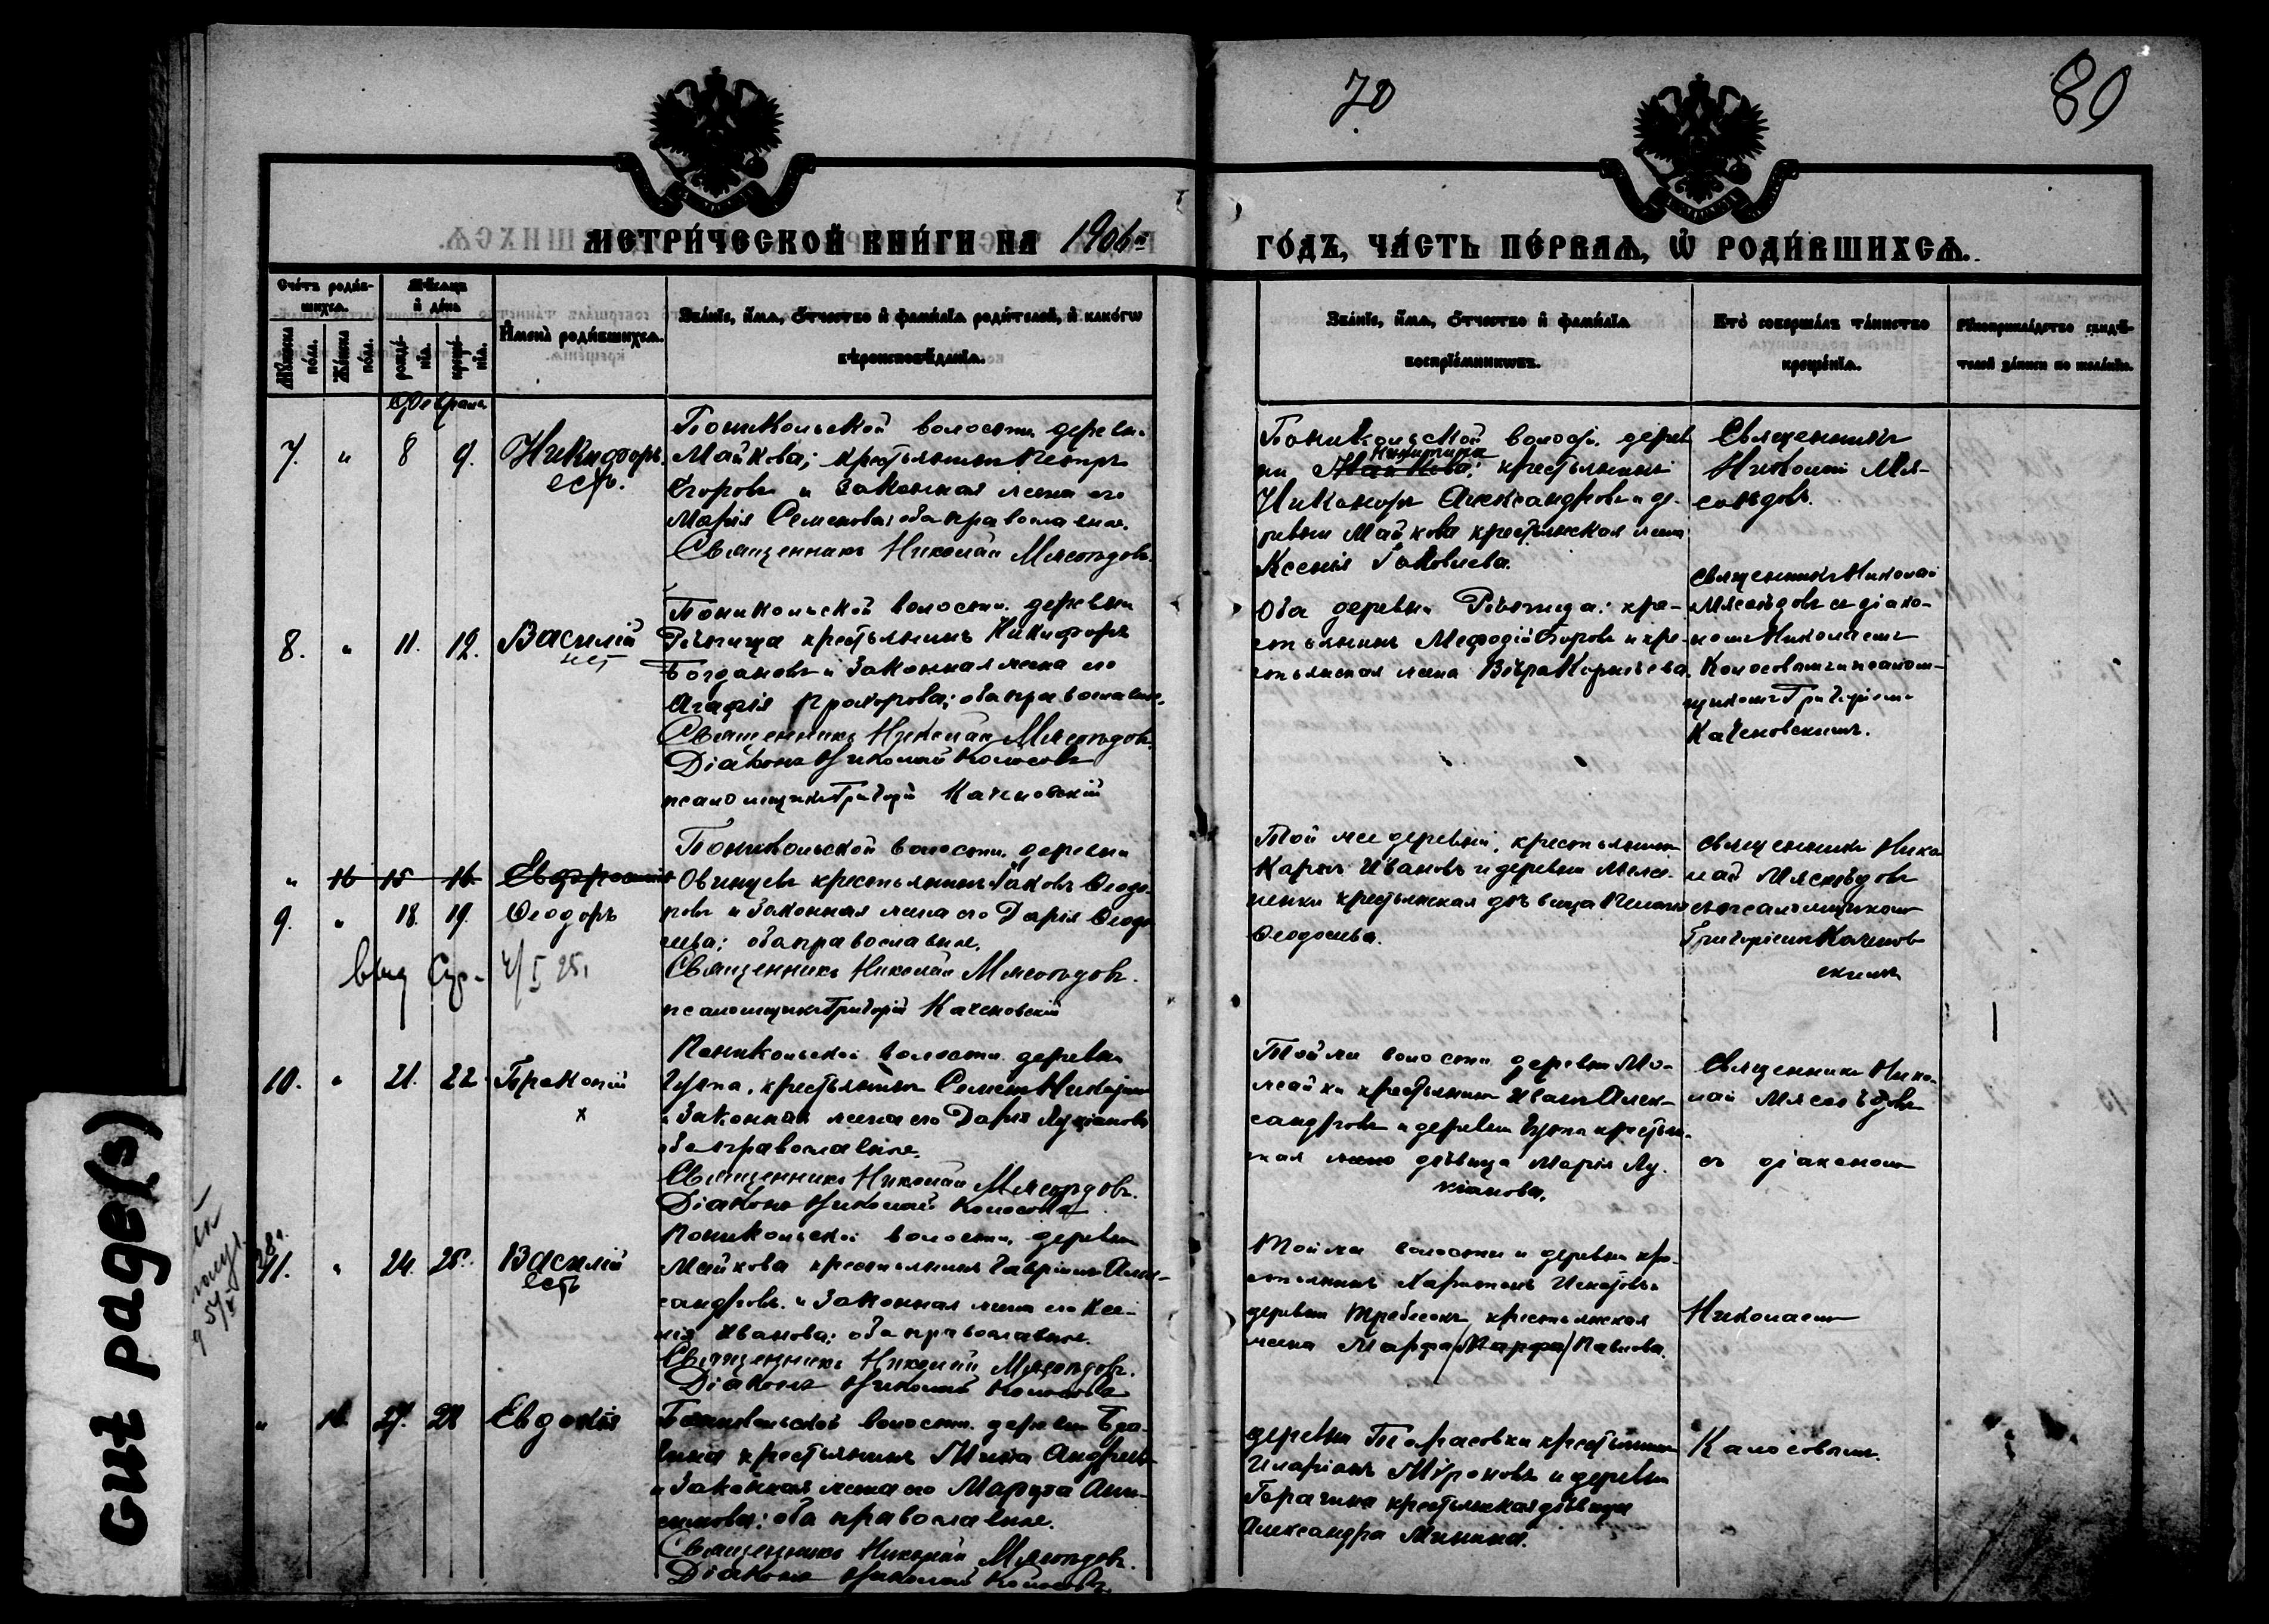 70
80
МЕТРИ́ЧЕСКОЙ КНИ́ГИ НА 1906й ГО́ДЪ, ЧА́СТЬ ПЕ́РВАѦ, Ѿ РОДИ́ВШИХСѦ.
Сче́тъ роди́в-
шихсѧ.
Мꙋ́жеска по́ла.
Же́нска по́ла.
Мѣ́сѧцъ
и҆ де́нь
рожде́-
нїѧ.
креще́-
нїѧ.
И҆мена̀ роди́вшихсѧ.
Зва́нїе, и҆́мѧ, ѻ҆́тчество и҆ фамѝлїѧ роди́телей, и҆ како́гѡ
вѣроисповѣ́данїѧ.
Зва́нїе, и҆́мѧ, ѻ҆́тчество и҆ фамѝлїѧ
воспрїе́мникѡвъ.
Кто̀ соверша́лъ та́инство
креще́нїѧ.
Рꙋкоприкла́дство свидѣ́-
телей за́писи по жела́нїю.
Февраля
7. " 8 9. Никифоръ
есть.
Поникольской волости деревни
Майкова; крестьянинъ Петръ
Егоровъ и законная жена его
Марія Семенова; оба православные.
Священникъ Николай Мясоѣдовъ.
Поникольской волости дерев
ни Никитина Майкова; крестьянинъ
Никаноръ Александровъ и де-
ревни Майкова крестьянская жена
Ксенія Яковлева.
Священникъ
Николай Мя-
соѣдовъ.
8. " 11. 12. Василій
нет
Поникольской волости деревни
Рѣпища крестьянинъ Никифоръ
Богдановъ и законная жена его
Агафія Прохорова; оба православные.
Священникъ Николай Мясоѣдовъ.
Діаконъ Николай Колосовъ
псаломщикъ Григорій Каченовскій
Оба деревни Рѣпища: кре-
стьянинъ Мефодій Егоровъ и кре-
стьянская жена Вѣра Корнѣева.
Священникъ Николай
Мясоѣдовъ съ діако-
номъ Николаемъ
Колосовымъ и псалом-
щикомъ Григоріемъ
Каченовскимъ.
" 16 15 16. Евфросинія
9. " 18. 19. Ѳеодоръ
4/I 25.
Поникольской волости деревни
Овинцевъ крестьянинъ Яковъ Ѳеодо-
ровъ и законная жена его Дарія Ѳеодо
оба православные.
Священникъ Николай Мясоѣдовъ.
псаломщикъ Григорій Каченовскій
Той же деревни, крестьянинъ
Карпъ Ивановъ и деревни
крестьянская дѣвица
Ѳеодосьева.
Священникъ Нико
лай Мясоѣдовъ
съ псаломщикомъ
Григоріемъ Каченов
скимъ
10. " 21. 22. Прокопій
х
Поникольской волости деревни
крестьянинъ Семенъ Никифоровъ
и законная жена его Дарія Лукіанова
оба православные.
Священникъ Николай Мясоѣдовъ.
Діаконъ Николай Колосовъ
Той же волости деревни Мо-
жайки крестьянинъ Иванъ Алек-
сандровъ и деревни крестьян-
ская жена дѣвица Марія Лу-
кіанова.
Священникъ Нико-
лай Мясоѣдовъ
съ діакономъ
11. " 24. 25. Василій
есть
Поникольской волости деревни
Майкова крестьянинъ Гавріилъ Алек-
сандровъ и законная жена его Ксе-
нія Иванова; оба православные.
Священникъ Николай Мясоѣдовъ.
Діаконъ Николай Колосовъ
Той же волости и деревни кре-
стьянинъ Харитонъ
деревни крестьянская
жена Марфа /Марфа/ Павлова.
Николаемъ
" 27. 28 Евдокія
Поникольской волости деревни
крестьянинъ Мина Андреевъ
и законная жена его Марфа Они-
симова; оба православные.
Священникъ Николай Мясоѣдовъ.
Діаконъ Николай Колосовъ
деревни Тарасовки крестьянинъ
Иларіонъ Мѵроновъ и деревни
крестьянская дѣвица
Александра Минина.
Колосовымъ.
Gut page(s)